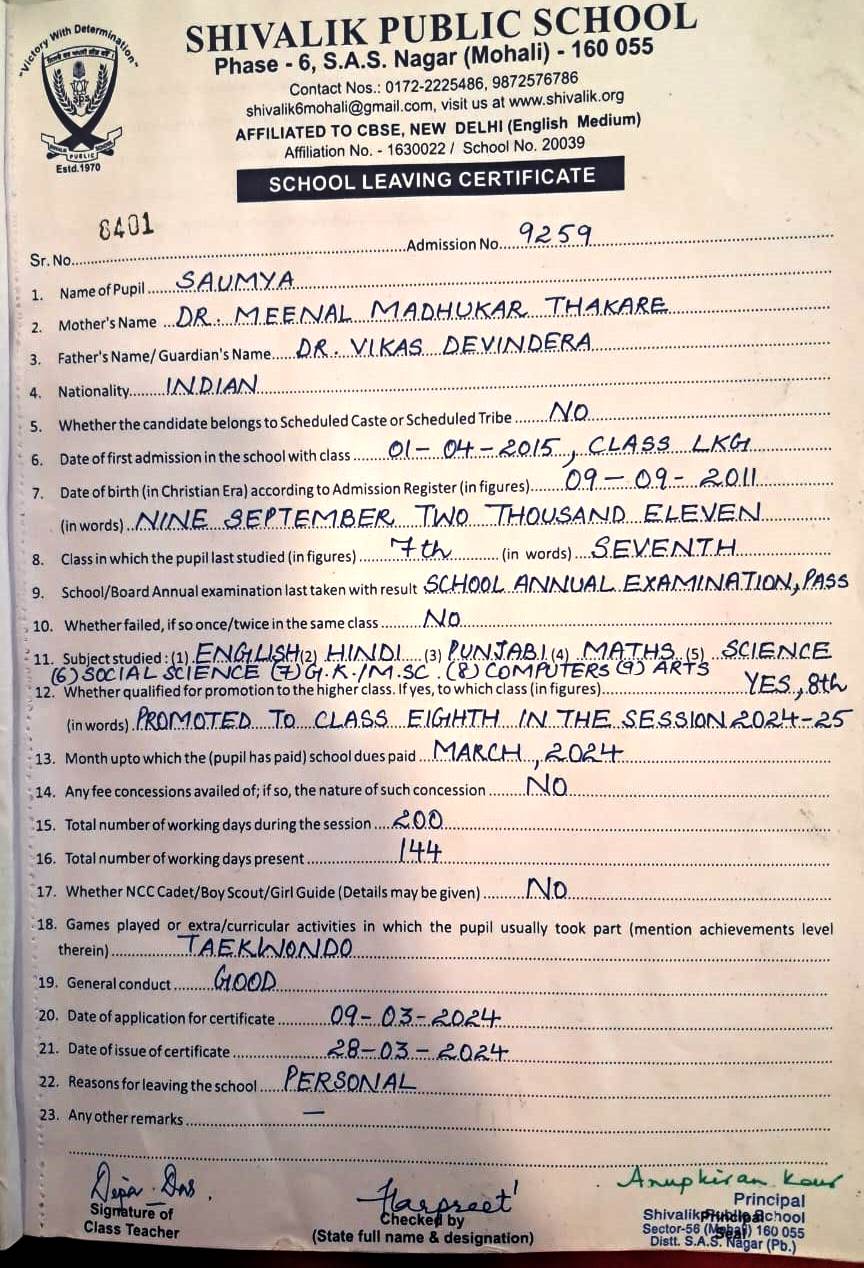 "Victory With Determination"
SPS
SHIVALIK
PUBLIC
SCHOOL
Estd.1970
SHIVALIK PUBLIC SCHOOL
Phase - 6, S.A.S. Nagar (Mohali) - 160 055
Contact Nos.: 0172-2225486, 9872576786
shivalik6mohali@gmail.com, visit us at www.shivalik.org
AFFILIATED TO CBSE, NEW DELHI (English Medium)
Affiliation No. - 1630022 / School No. 20039
SCHOOL LEAVING CERTIFICATE
Sr. No. 6401 Admission No. 9259
1. Name of Pupil SAUMYA
2. Mother's Name DR. MEENAL MADHUKAR THAKARE
3. Father's Name/ Guardian's Name DR. VIKAS DEVINDERA
4. Nationality INDIAN
5. Whether the candidate belongs to Scheduled Caste or Scheduled Tribe NO
6. Date of first admission in the school with class 01-04-2015, CLASS LKG
7. Date of birth (in Christian Era) according to Admission Register (in figures) 09-09-2011
(in words) NINE SEPTEMBER TWO THOUSAND ELEVEN
8. Class in which the pupil last studied (in figures) 7th (in words) SEVENTH
9. School/Board Annual examination last taken with result SCHOOL ANNUAL EXAMINATION, PASS
10. Whether failed, if so once/twice in the same class NO
11. Subject studied : (1) ENGLISH (2) HINDI (3) PUNJABI (4) MATHS (5) SCIENCE
(6) SOCIAL SCIENCE (7) G.K./M.SC. (8) COMPUTERS (9) ARTS
12. Whether qualified for promotion to the higher class. If yes, to which class (in figures) YES, 8th
(in words) PROMOTED TO CLASS EIGHTH IN THE SESSION 2024-25
13. Month upto which the (pupil has paid) school dues paid MARCH, 2024
14. Any fee concessions availed of; if so, the nature of such concession NO
15. Total number of working days during the session 200
16. Total number of working days present 144
17. Whether NCC Cadet/Boy Scout/Girl Guide (Details may be given) NO
18. Games played or extra/curricular activities in which the pupil usually took part (mention achievements level
therein) TAEKWONDO
19. General conduct GOOD
20. Date of application for certificate 09-03-2024
21. Date of issue of certificate 28-03-2024
22. Reasons for leaving the school PERSONAL
23. Any other remarks —
Dipa Das.
Signature of
Class Teacher
Harpreet
Checked by
(State full name & designation)
Anupkiran Kaur
Principal
Shivalik Public School
Sector-56 (Mohali) 160 055
Distt. S.A.S. Nagar (Pb.)
Principal
Seal